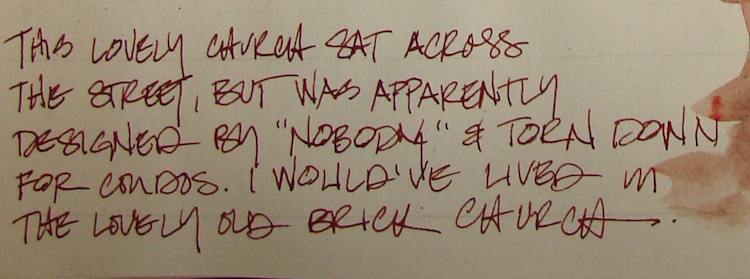 THIS LOVELY CHURCH SAT ACROSS
THE STREET, BUT WAS APPARENTLY
DESIGNED BY "NOBODY" & TORN DOWN
FOR CONDOS. I WOULD'VE LIVED IN
THE LOVELY OLD BRICK CHURCH.